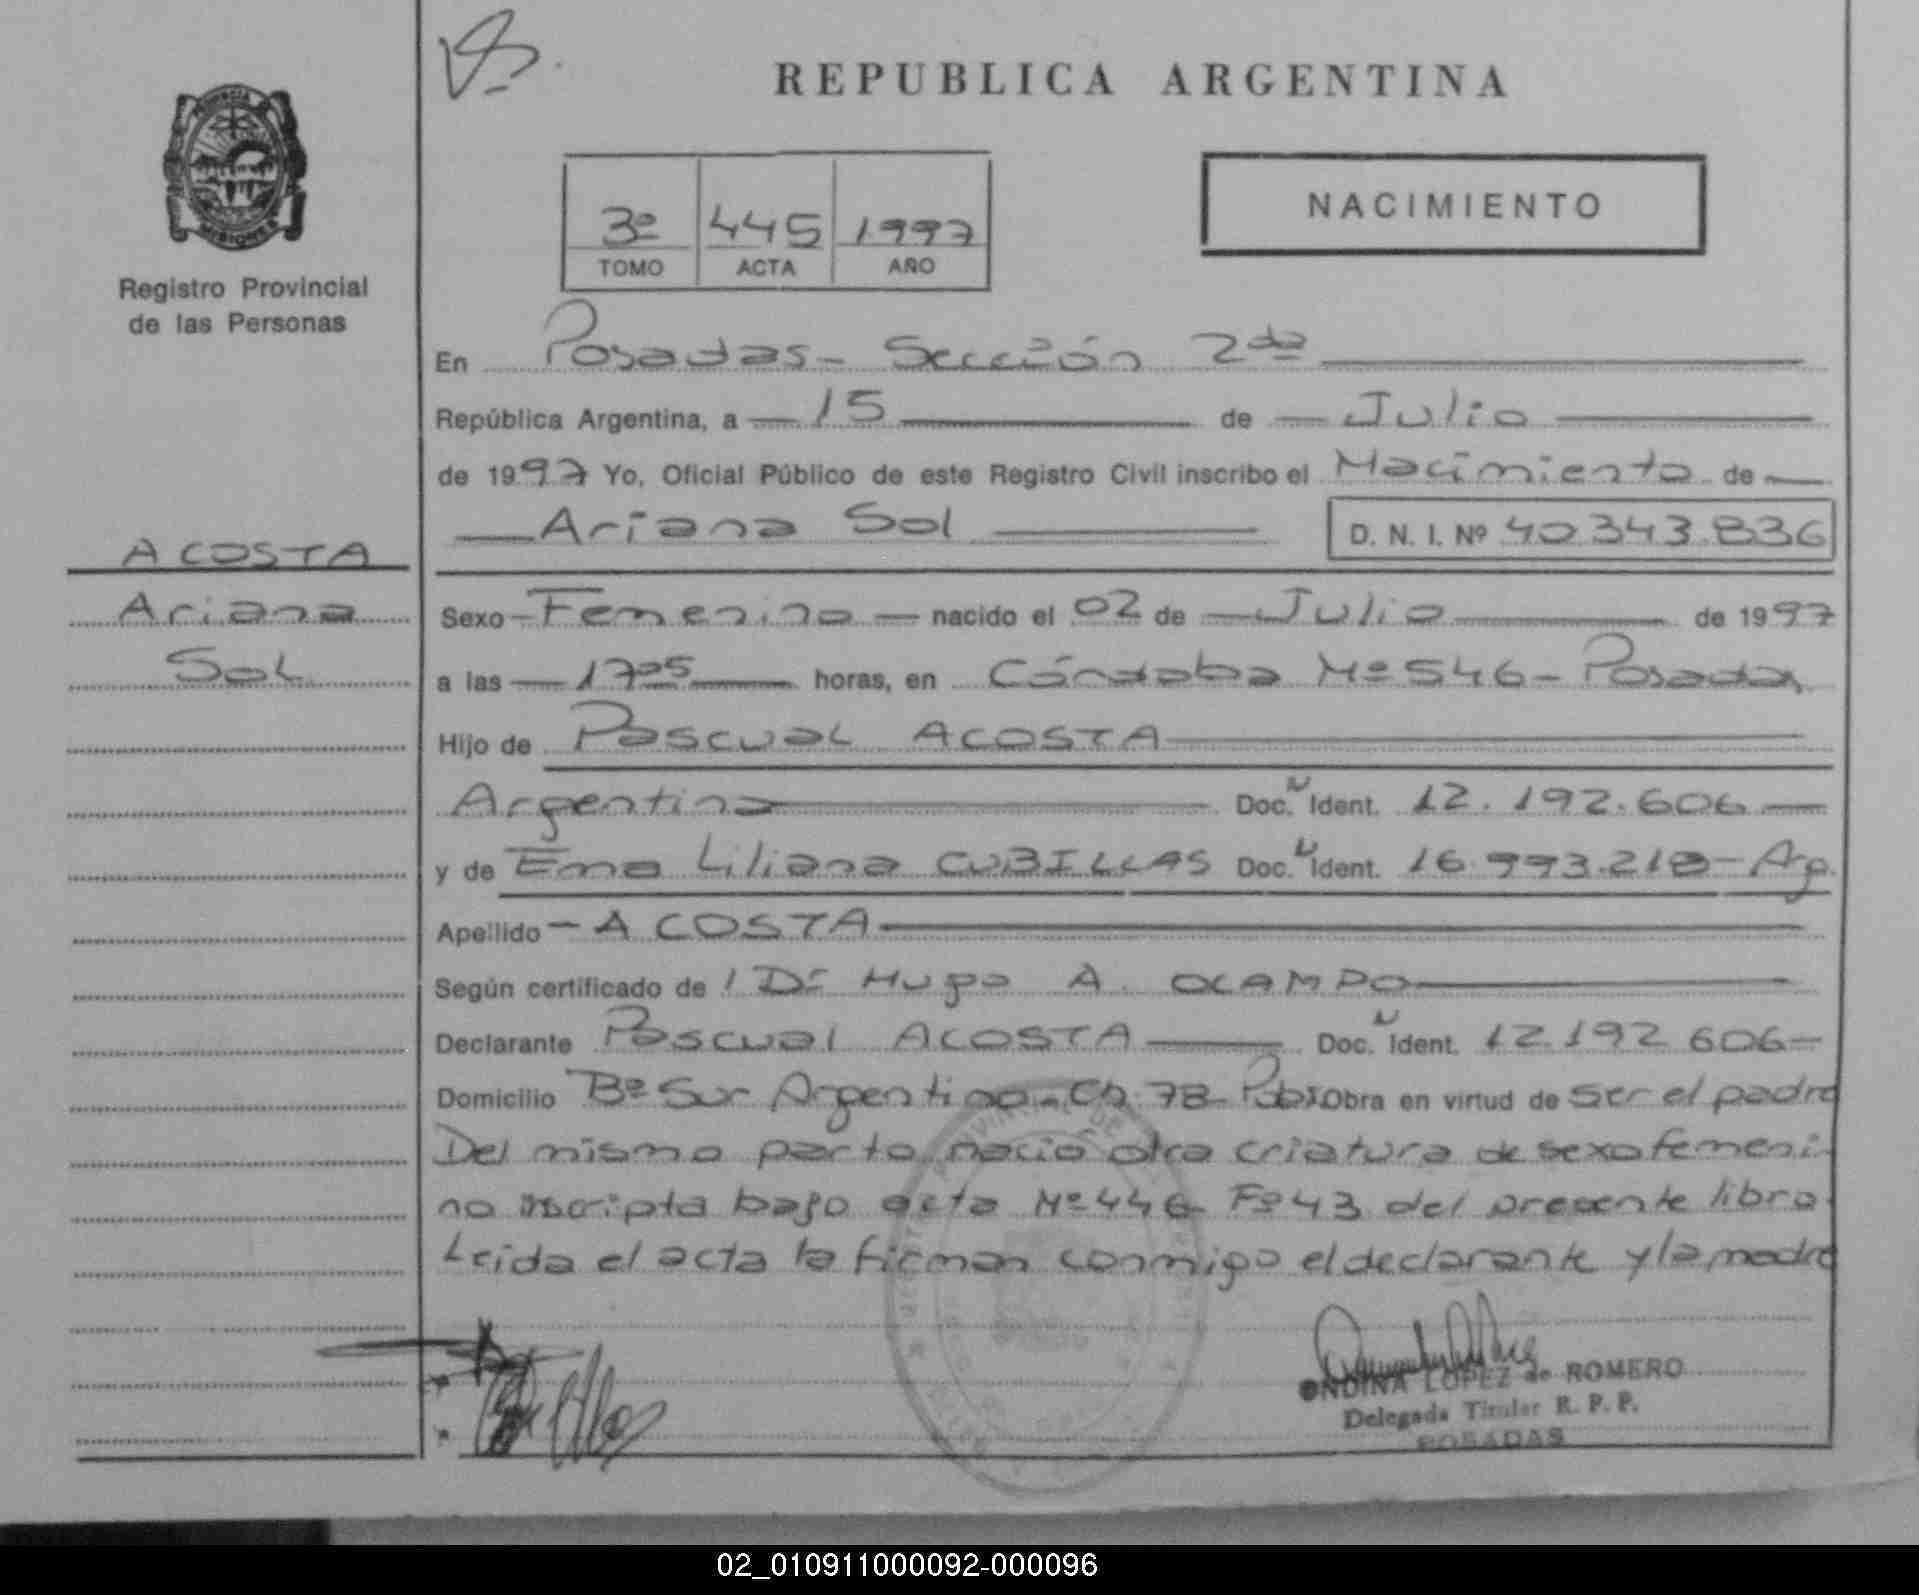 REPUBLICA ARGENTINA
PROVINCIA DE
MISIONES
Registro Provincial
de las Personas
3º 445 1997
TOMO ACTA AÑO
NACIMIENTO
En Posadas - Sección 2da
República Argentina, a 15 de Julio
de 1997 Yo, Oficial Público de este Registro Civil inscribo el Nacimiento de
Ariana Sol D. N. I. Nº 40.343.836
ACOSTA
Ariana
Sol
Sexo Femenino nacido el 02 de Julio de 1997
a las 17 05 horas, en Córdoba Nº 546 - Posadas
Hijo de Pascual ACOSTA
Argentina Doc. N Ident. 12.192.606
y de Ema Liliana CUBILLAS Doc. Ident. 16.993.218 - Arg.
Apellido - ACOSTA
Según certificado de l Dr Hugo A. OCAMPO
Declarante Pascual ACOSTA Doc. N Ident. 12.192.606
Domicilio Bº Sur Argentino - Ch. 78 - Obra en virtud de ser el padre
Del mismo parto nació otra criatura de sexo femeni-
no inscripta bajo acta Nº 446 - Fº 43 del presente libro.
Leída el acta la firman conmigo el declarante y la madre
ONDINA LOPEZ de ROMERO
Delegada Titular R. P. P.
POSADAS
02_010911000092-000096